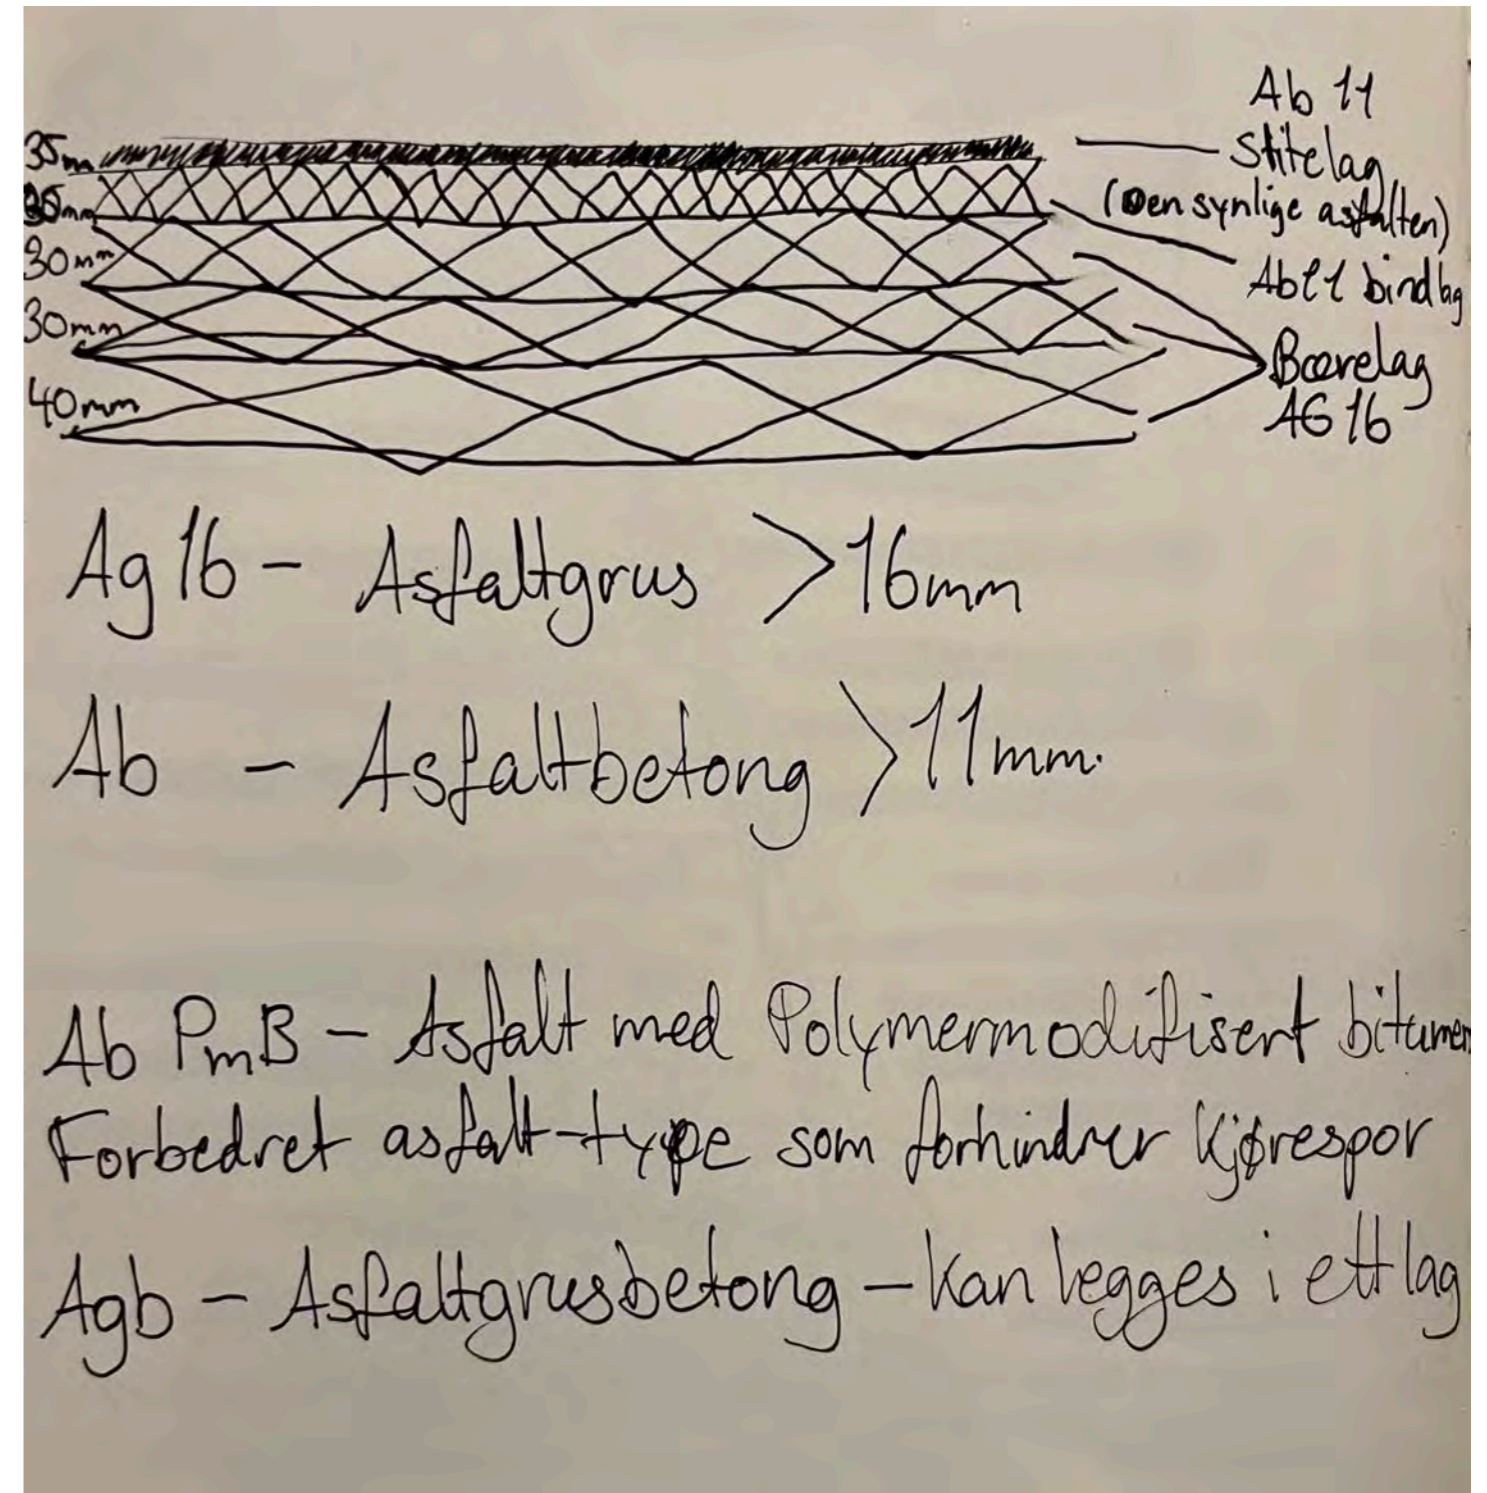 Ab 11
35mm
Slitelag
(Den synlige asfalten)
30mm
Ab11 bindlag
30mm
Bærelag
40mm
AG 16
Ag 16 - Asfaltgrus >16mm
Ab - Asfaltbetong >11mm.
Ab PmB - Asfalt med Polymermodifisert bitumen
Forbedret asfalt-type som forhindrer kjørespor
Agb - Asfaltgrusbetong - kan legges i ett lag